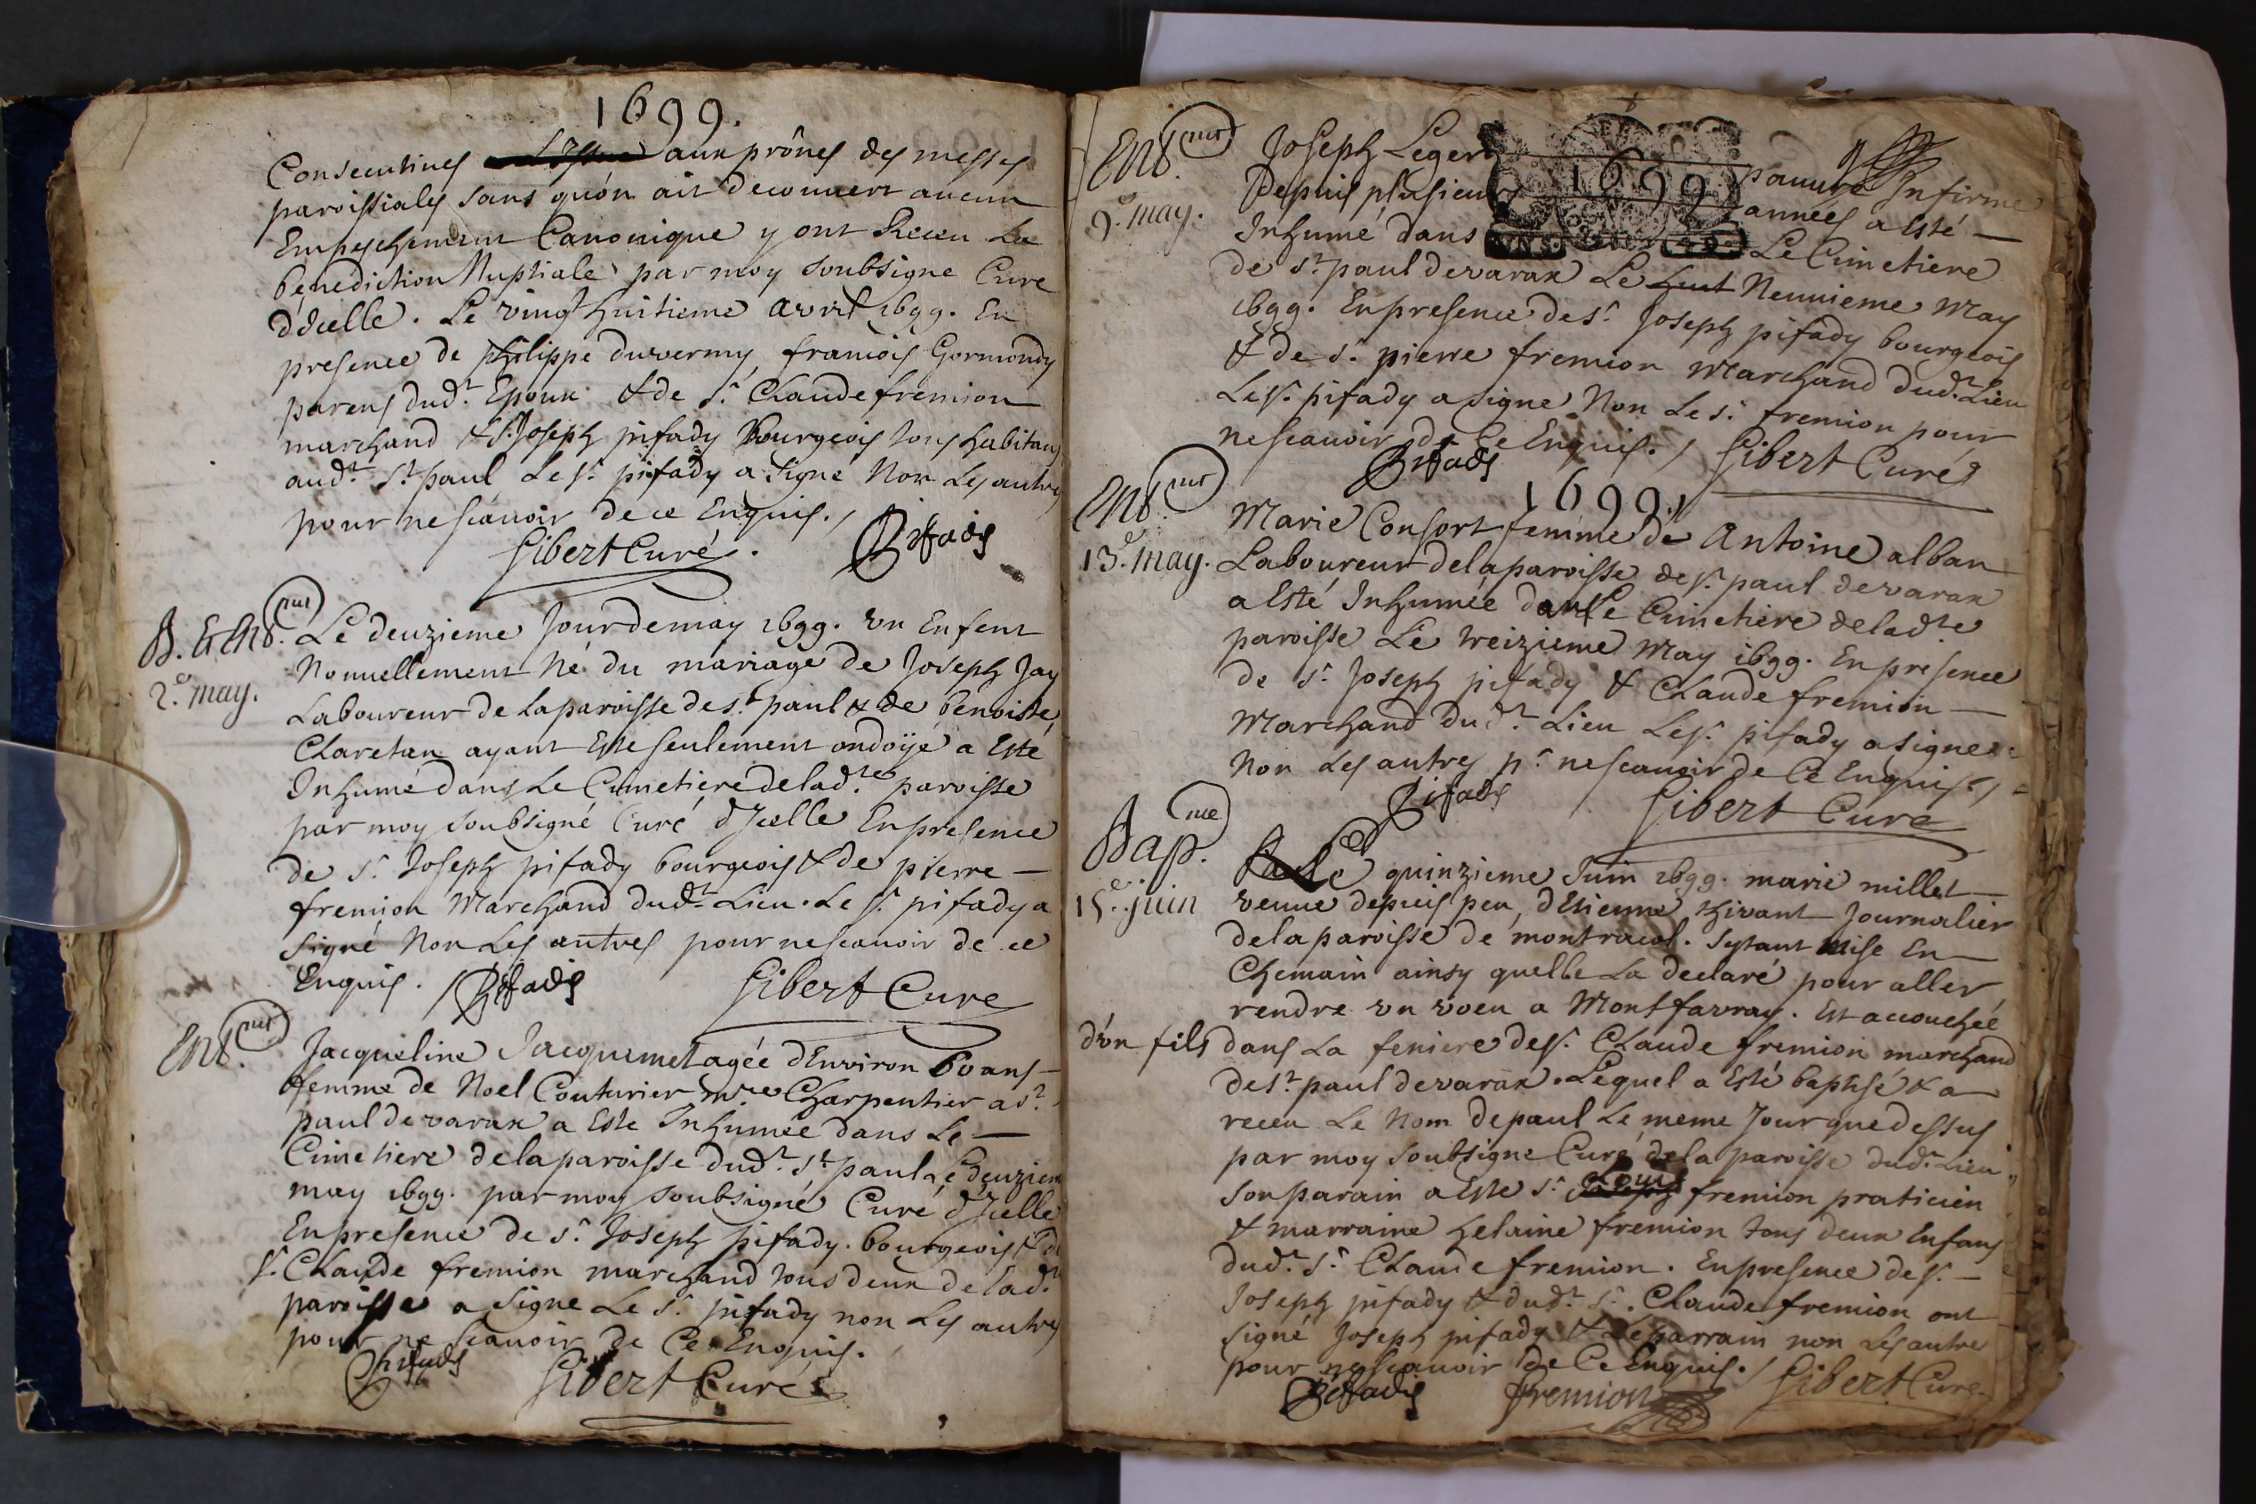 1699.
Consecutives aux prônes des messes
paroissiales sans qu'on ait decouvert aucun
Empeschement Canonique y ont Receu La
benediction Nuptiale par moy soubsigne Cure
d'Icelle. Le vingt huitieme avril 1699. En
presence de philippe duvermy, francois Gormondy
parens dud.t Epoux & de s.r Claude fremion
marchand & s.r Joseph pifady Bourgeois tous habitans
aud.t s.t paul Le s.r pifady a signé Non Les autres
pour ne scavoir de ce Enquis. /
Gibert Curé. Pifady
B. Et Ent. nut
2.e may.
Le deuzieme Jour de may 1699. un Enfent
Nouuellement Né du mariage de Joseph Jay
Laboureur de La paroisse de s.t paul & de benoiste
Claretan ayant Este seulement ondoÿé a Esté
Inhumé dans Le Cimetiere de lad.te paroisse
par moy soubsigné Curé d'Icelle En presence
de s.r Joseph pifady bourgeois & de pierre —
fremion Marchand dud.t Lieu. Le s.r pifady a
signé Non Les autres pour ne scavoir de ce
Enquis. / Pifady Gibert Cure
Ent. nut
Jacqueline Jacquemet agée d'Environ 60 ans —
femme de Noel Couturier m.re Charpentier a s.t
paul de varax a Este Inhumée dans Le —
Cimetiere de la paroisse dud.t s.t paul Le deuziem
may 1699. par moy soubsigné Curé d'Icelle
En presence de s.r Joseph pifady. bourgeois & de
s.r Claude fremion marchand tous deux de lad.te
paroisse a signe Le s.r pifady non Les autres
pour ne scavoir de Ce Enquis.
Pifady Gibert Curé
Ent. nut
9.e may.
Joseph Leger pauure Infirme
Depuis plusieurs années a Esté —
Inhumé dans Le Cimetiere
1699
de s.t paul de varax Le huit Neuuieme May
1699. En presence de s.r Joseph pifady bourgeois
& de s.r pierre fremion Marchand dud.t Lieu
Le s.r pifady a signe Non Le s.r fremion pour
ne scavoir de Ce Enquis. / Gibert Curé
Pifady
1699.
Ent. nut
13.e may.
Marie Consort femme de Antoine alban
Laboureur de la paroisse de s.t paul de varax
a Esté Inhumée dans Le Cimetiere de lad.te
paroisse Le treizieme May 1699. En presence
de s.r Joseph pifady & Claude fremion —
Marchand dud.t Lieu Le s.r pifady a signe
Non Les autres p.r ne scavoir de Ce Enquis. /
Pifady Gibert Cure
Bap. nce
15.e juin
Le quinzieme Juin 1699. marie millet —
veuue depuis peu d'Etienne thivant Journalier
de la paroisse de montracol. s'estant mise En —
Chemain ainsy quelle La declaré pour aller
rendre un voeu a Montfavray. Est accouchée
d'un fils dans La feniere de s.r Claude fremion marchand
de s.t paul de varax. Lequel a Esté baptisé & a —
receu Le Nom de paul Le meme Jour que dessus
par moy soubsigne Curé de la paroisse dud.t Lieu
son parain a Este s.r Louis fremion praticien
& marraine helaine fremion tous deux Enfans
dud.t s.r Claude fremion. En presence de s.r —
Joseph pifady & dud.t s.r Claude fremion ont
signé Joseph pifady & Le parrain non Les autre
pour ne scavoir de Ce Enquis. /
Pifady fremion Gibert Cure